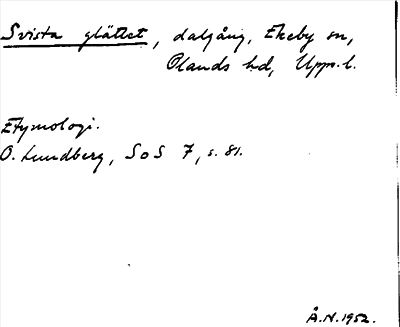 Svista glättet, dalgång, Ekeby sn,
Olands hd, Upps. l.
Etymologi.
O. Lundberg, SoS 7, s. 81.
Å.N. 1952.